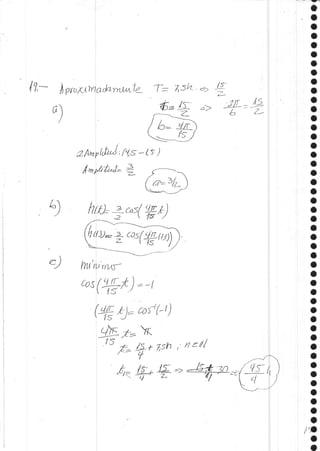 19.- Aproximadamente T= 7,5h ⇔ 15/2
a) b= 15/2 => 2π/b = 15/2
b= 4π/15
2Amplitud: (1,5 - 1,5)
Amplitud= 3/2
a= 3/2
b) h(t)= 3/2 cos( 4π/15 t)
h(t)= 3/2 cos( 4π/15 (t))
c) mínimo
cos( 4π/15 t) = -1
( 4π/15 t)= cos⁻¹(-1)
4π/15 t= π
t= 15/4 + 7,5h ; n∈ℕ
t= 15/4 + 15/2 => 15+30/4 = 45/4 h